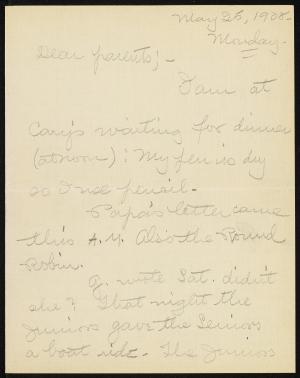 May 25, 1908.
Monday.
Dear parents;-
I am at
Cary's waiting for dinner
(at noon): My pen is dry
so I use pencil.
Papa's letter came
this A.M. Also the Round
Robin.
G. wrote Sat. didn't
she? That night the
Juniors gave the Seniors
a boat ride. The Juniors